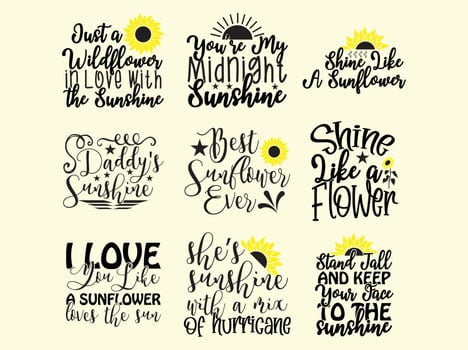 Just a
Wildflower
in Love With
the Sunshine
You're My
Midnight
Sunshine
Shine Like
A Sunflower
Daddy's
Sunshine
Best
Sunflower
Ever
Shine
Like a
Flower
I LOVE
You Like
A SUNFLOWER
loves the sun
she's
sunshine
with a mix
OF hurricane
Stand Tall
AND KEEP
Your Face
TO THE
sunshine